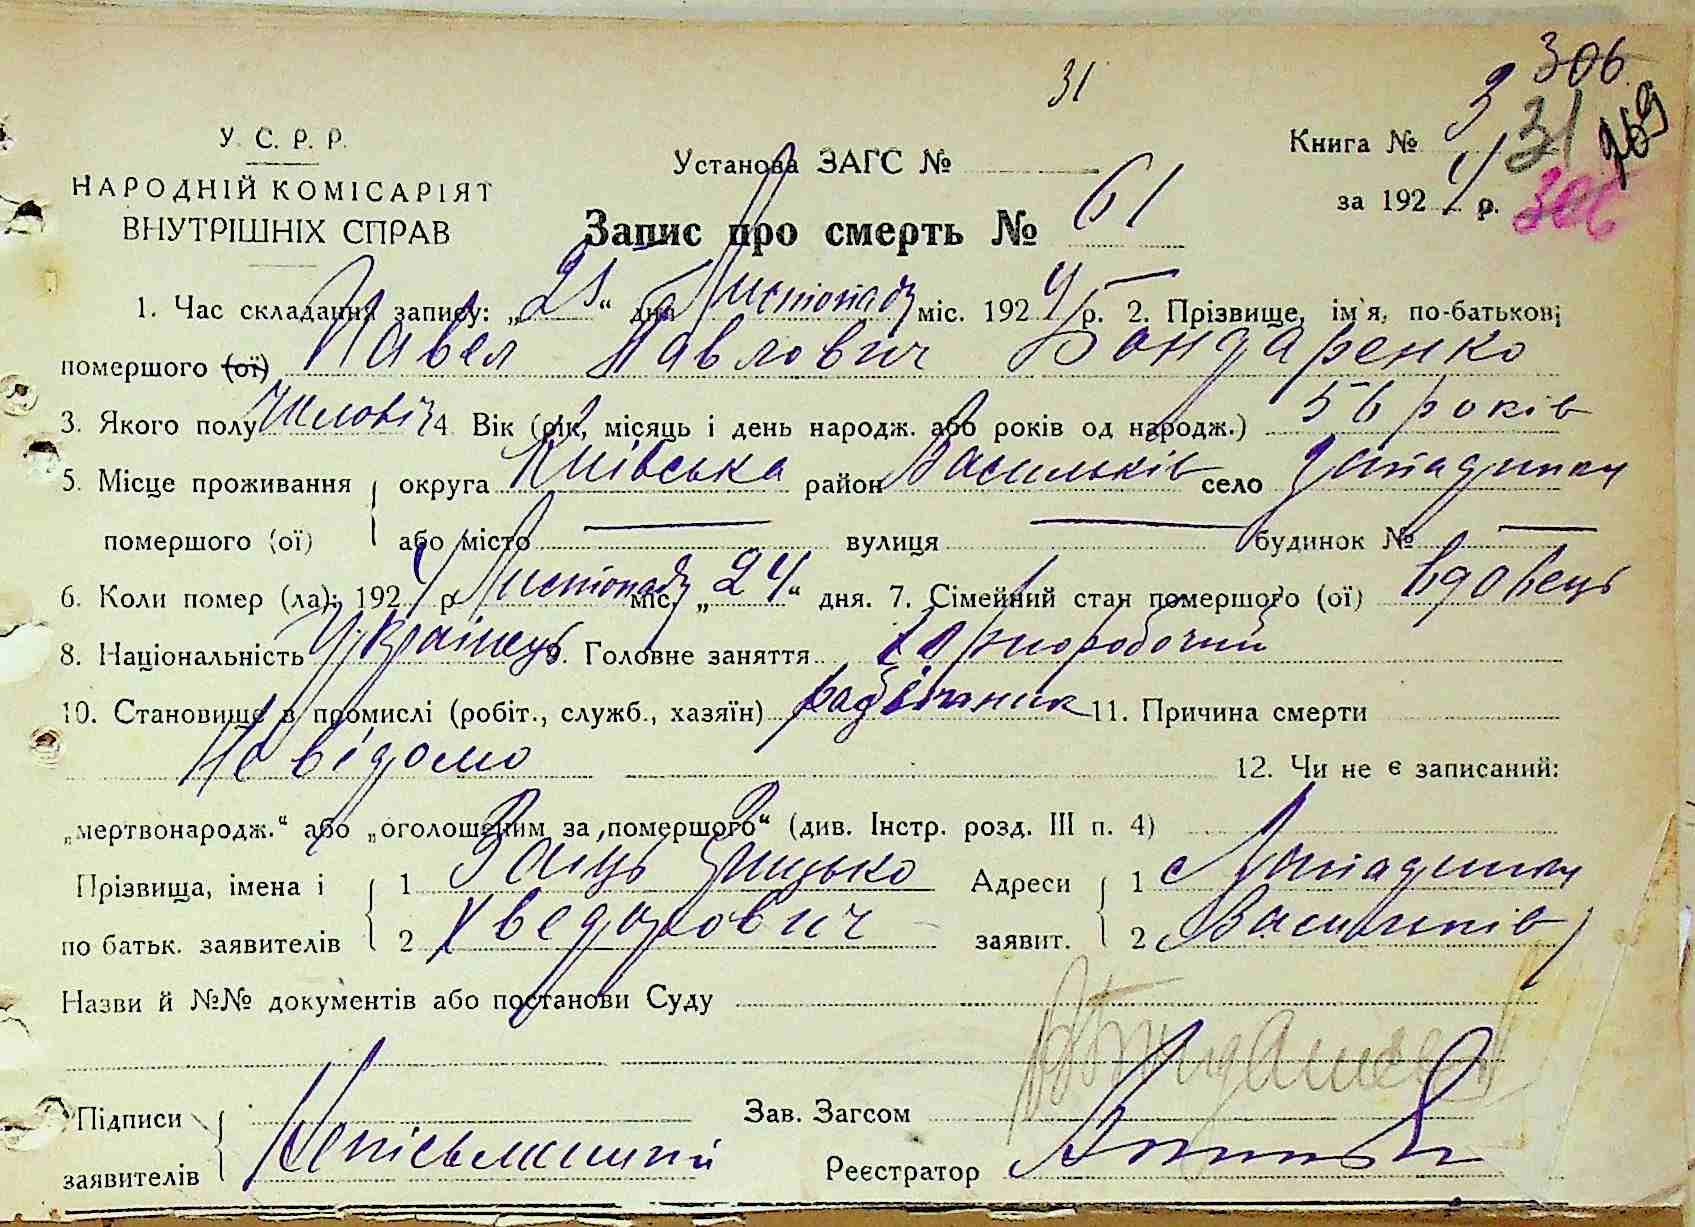 306
31
Книга № 3 31 969
У. С. Р. Р.
Установа ЗАГС №
НАРОДНІЙ КОМІСАРІЯТ
за 1924 р. 306
ВНУТРІШНІХ СПРАВ
Запис про смерть № 61
1. Час складання запису: „25“ дня Листопаду міс. 1924 р. 2. Прізвище, ім'я, по-батькові
помершого (ої) Павел Павлович Бондаренко
3. Якого полу чиловіч 4. Вік (рік, місяць і день народж. або років од народж.) 56 років
5. Місце проживання округа Київська район Васильків село
помершого (ої) або місто вулиця будинок №
6. Коли помер (ла): 1924 р. Листопаду міс. „24“ дня. 7. Сімейний стан помершого (ої) вдовець
8. Національність Українець 9. Головне заняття Чорноробочий
10. Становище в промислі (робіт., служб., хазяїн) 11. Причина смерти
Не відомо
12. Чи не є записаний:
„мертвонародж.“ або „оголошеним за помершого“ (див. Інстр. розд. III п. 4)
Прізвища, імена і 1 Заяць Грицько Адреси 1 с
по батьк. заявителів 2 Хведорович заявит. 2 Васильків
Назви й №№ документів або постанови Суду
Підписи Зав. Загсом
заявителів Непісьменний Реєстратор